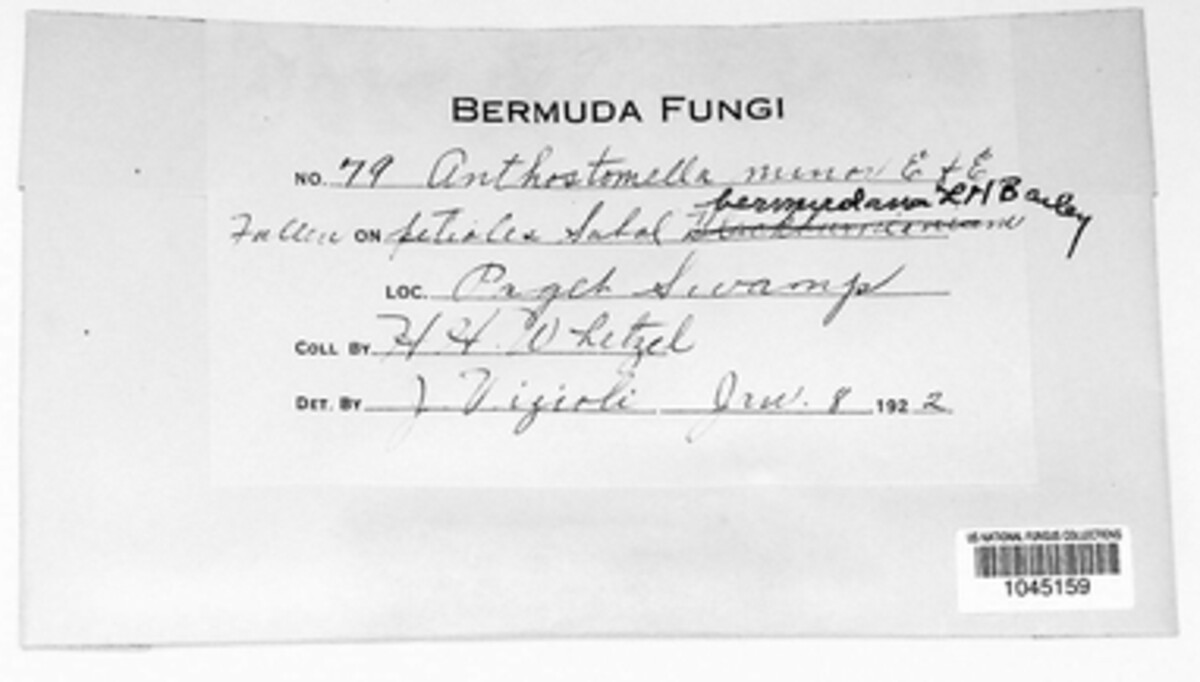 BERMUDA FUNGI
NO. 79 Anthostomella minor E & E
bermudana L H Bailey
Fallen ON petioles Sabal Blackburnianum
LOC. Paget Swamp
COLL BY H H Whetzel
DET. BY J. Vizioli Jan. 8 1922
US NATIONAL FUNGUS COLLECTIONS
1045159